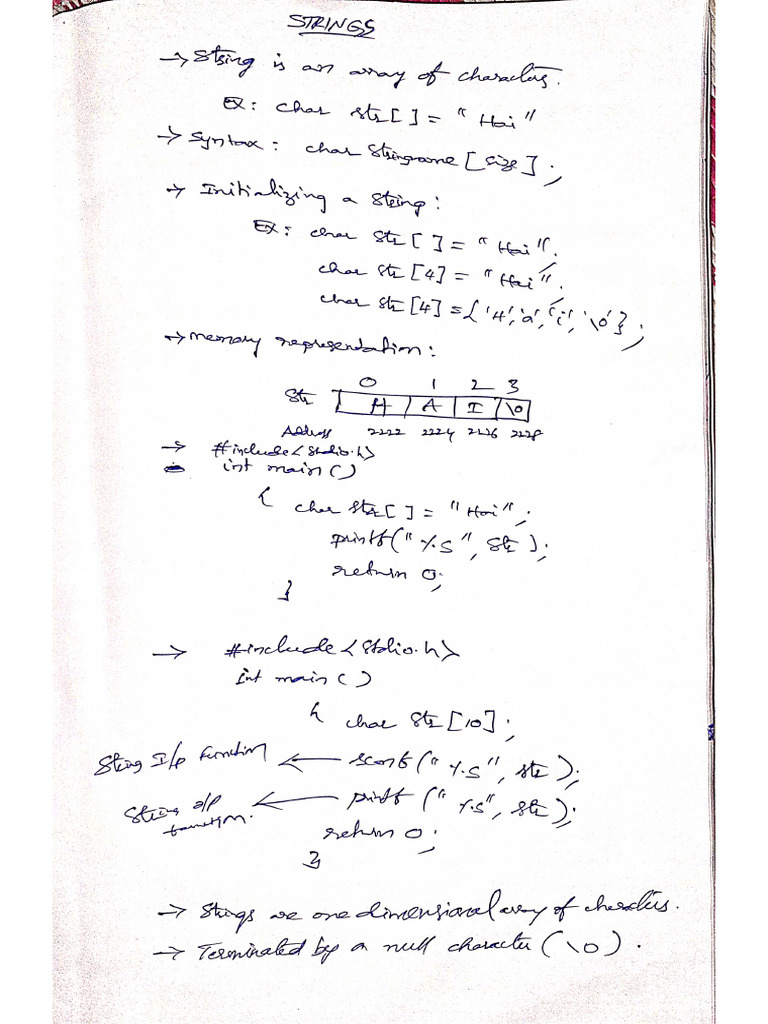 STRINGS
→ String is an array of characters.
Ex: char str[ ] = "Hai"
→ Syntax: char Stringname [size];
→ Initializing a string:
Ex: char str [ ] = "Hai";
char str [4] = "Hai";
char str [4] = {'H','a','i','\0'};
→ Memory representation:
0 1 2 3
Str H A I \0
Address 2222 2224 2226 2228
→ #include<stdio.h>
int main()
{ char str[ ] = "Hai";
printf("%s", str);
return 0;
}
→ #include<stdio.h>
int main()
{ char str [10];
String I/p function ← scanf("%s", str);
String o/p function. ← printf("%s", str);
return 0;
}
→ Strings are one dimensional array of characters.
→ Terminated by a null character (\0).